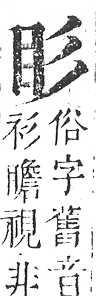 䀐
俗字舊音
衫瞻視非